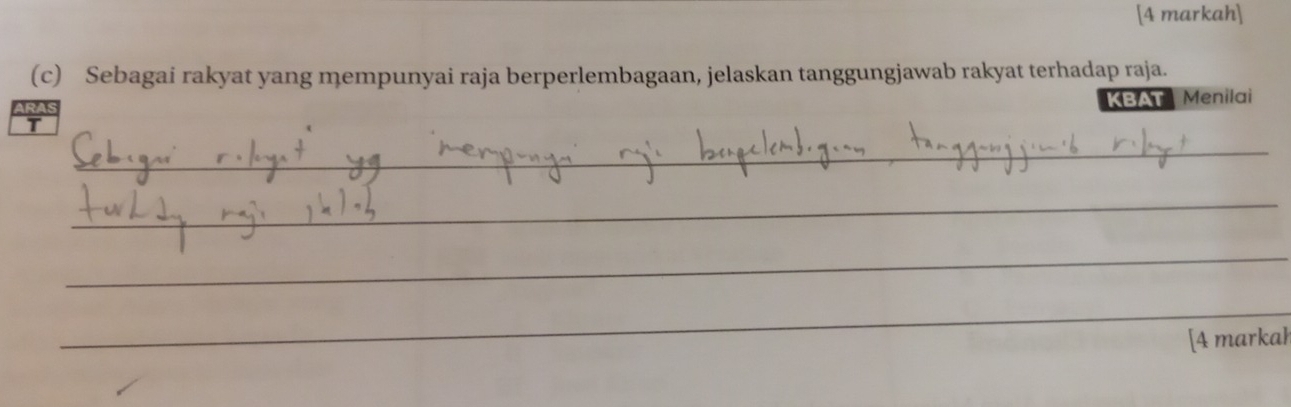 [4 markah]
(c) Sebagai rakyat yang mempunyai raja berperlembagaan, jelaskan tanggungjawab rakyat terhadap raja.
KBAT Menilai
ARAS
T
Sebagai rakyat yg mempunyai raja berpelembagaan, tanggungjawab rakyat
terhadap raja ialah
[4 markah